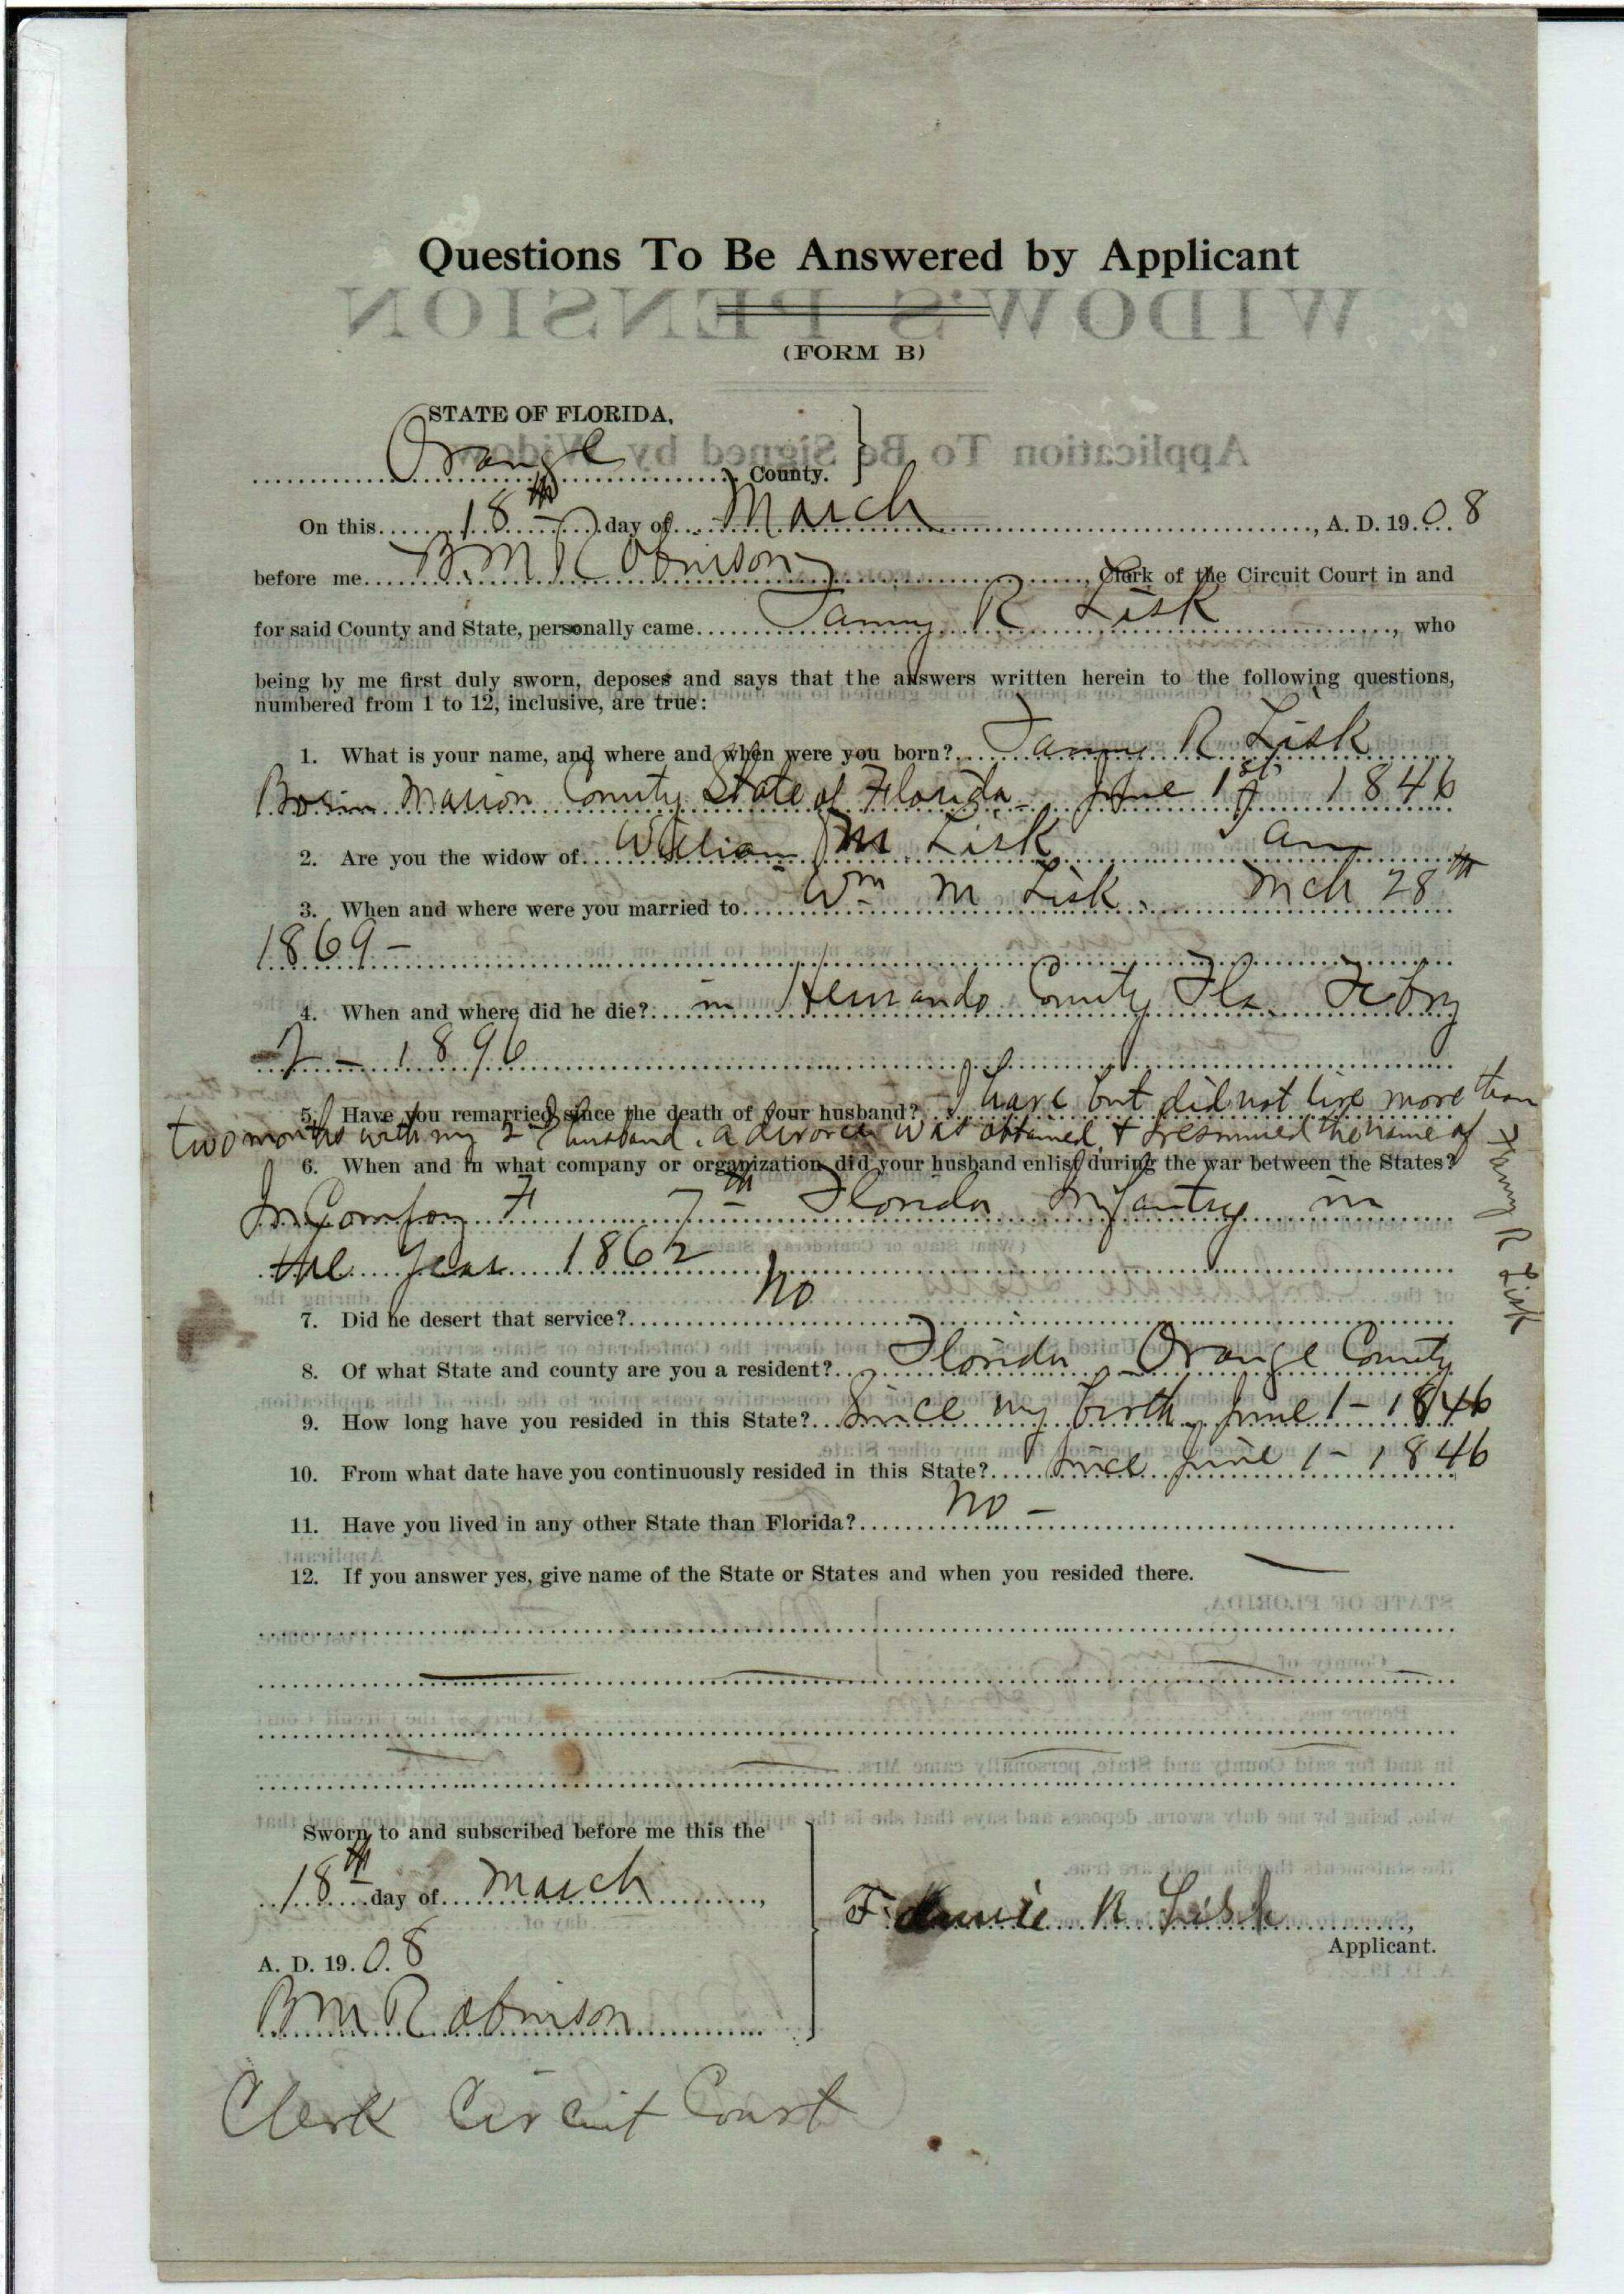 Questions To Be Answered by Applicant
(FORM B)
STATE OF FLORIDA,
Orange County.
On this 18th day of March, A. D. 1908
before me B. M Robinson, Clerk of the Circuit Court in and
for said County and State, personally came Fanny R Lisk, who
being by me first duly sworn, deposes and says that the answers written herein to the following questions,
numbered from 1 to 12, inclusive, are true:
1. What is your name, and where and when were you born? Fanny R Lisk
Born Marion County State of Florida June 1st 1846
2. Are you the widow of William M Lisk I am
3. When and where were you married to Wm M Lisk. Mch 28th
1869-
4. When and where did he die? in Hernando County Fla. Febry
7 - 1896
5. Have you remarried since the death of your husband? I have but did not live more than
two months with my 2d husband. a divorce was obtained & I resumed the name of
Fanny R Lisk
6. When and in what company or organization did your husband enlist during the war between the States?
In Company F 7th Florida Infantry in
the year 1862
7. Did he desert that service? No
8. Of what State and county are you a resident? Florida, Orange County
9. How long have you resided in this State? Since my birth June 1-1846
10. From what date have you continuously resided in this State? Since June 1-1846
11. Have you lived in any other State than Florida? No -
12. If you answer yes, give name of the State or States and when you resided there.
Sworn to and subscribed before me this the
18th day of March,
A. D. 1908
B M Robinson
Clerk Circuit Court
Fannie R Lisk,
Applicant.